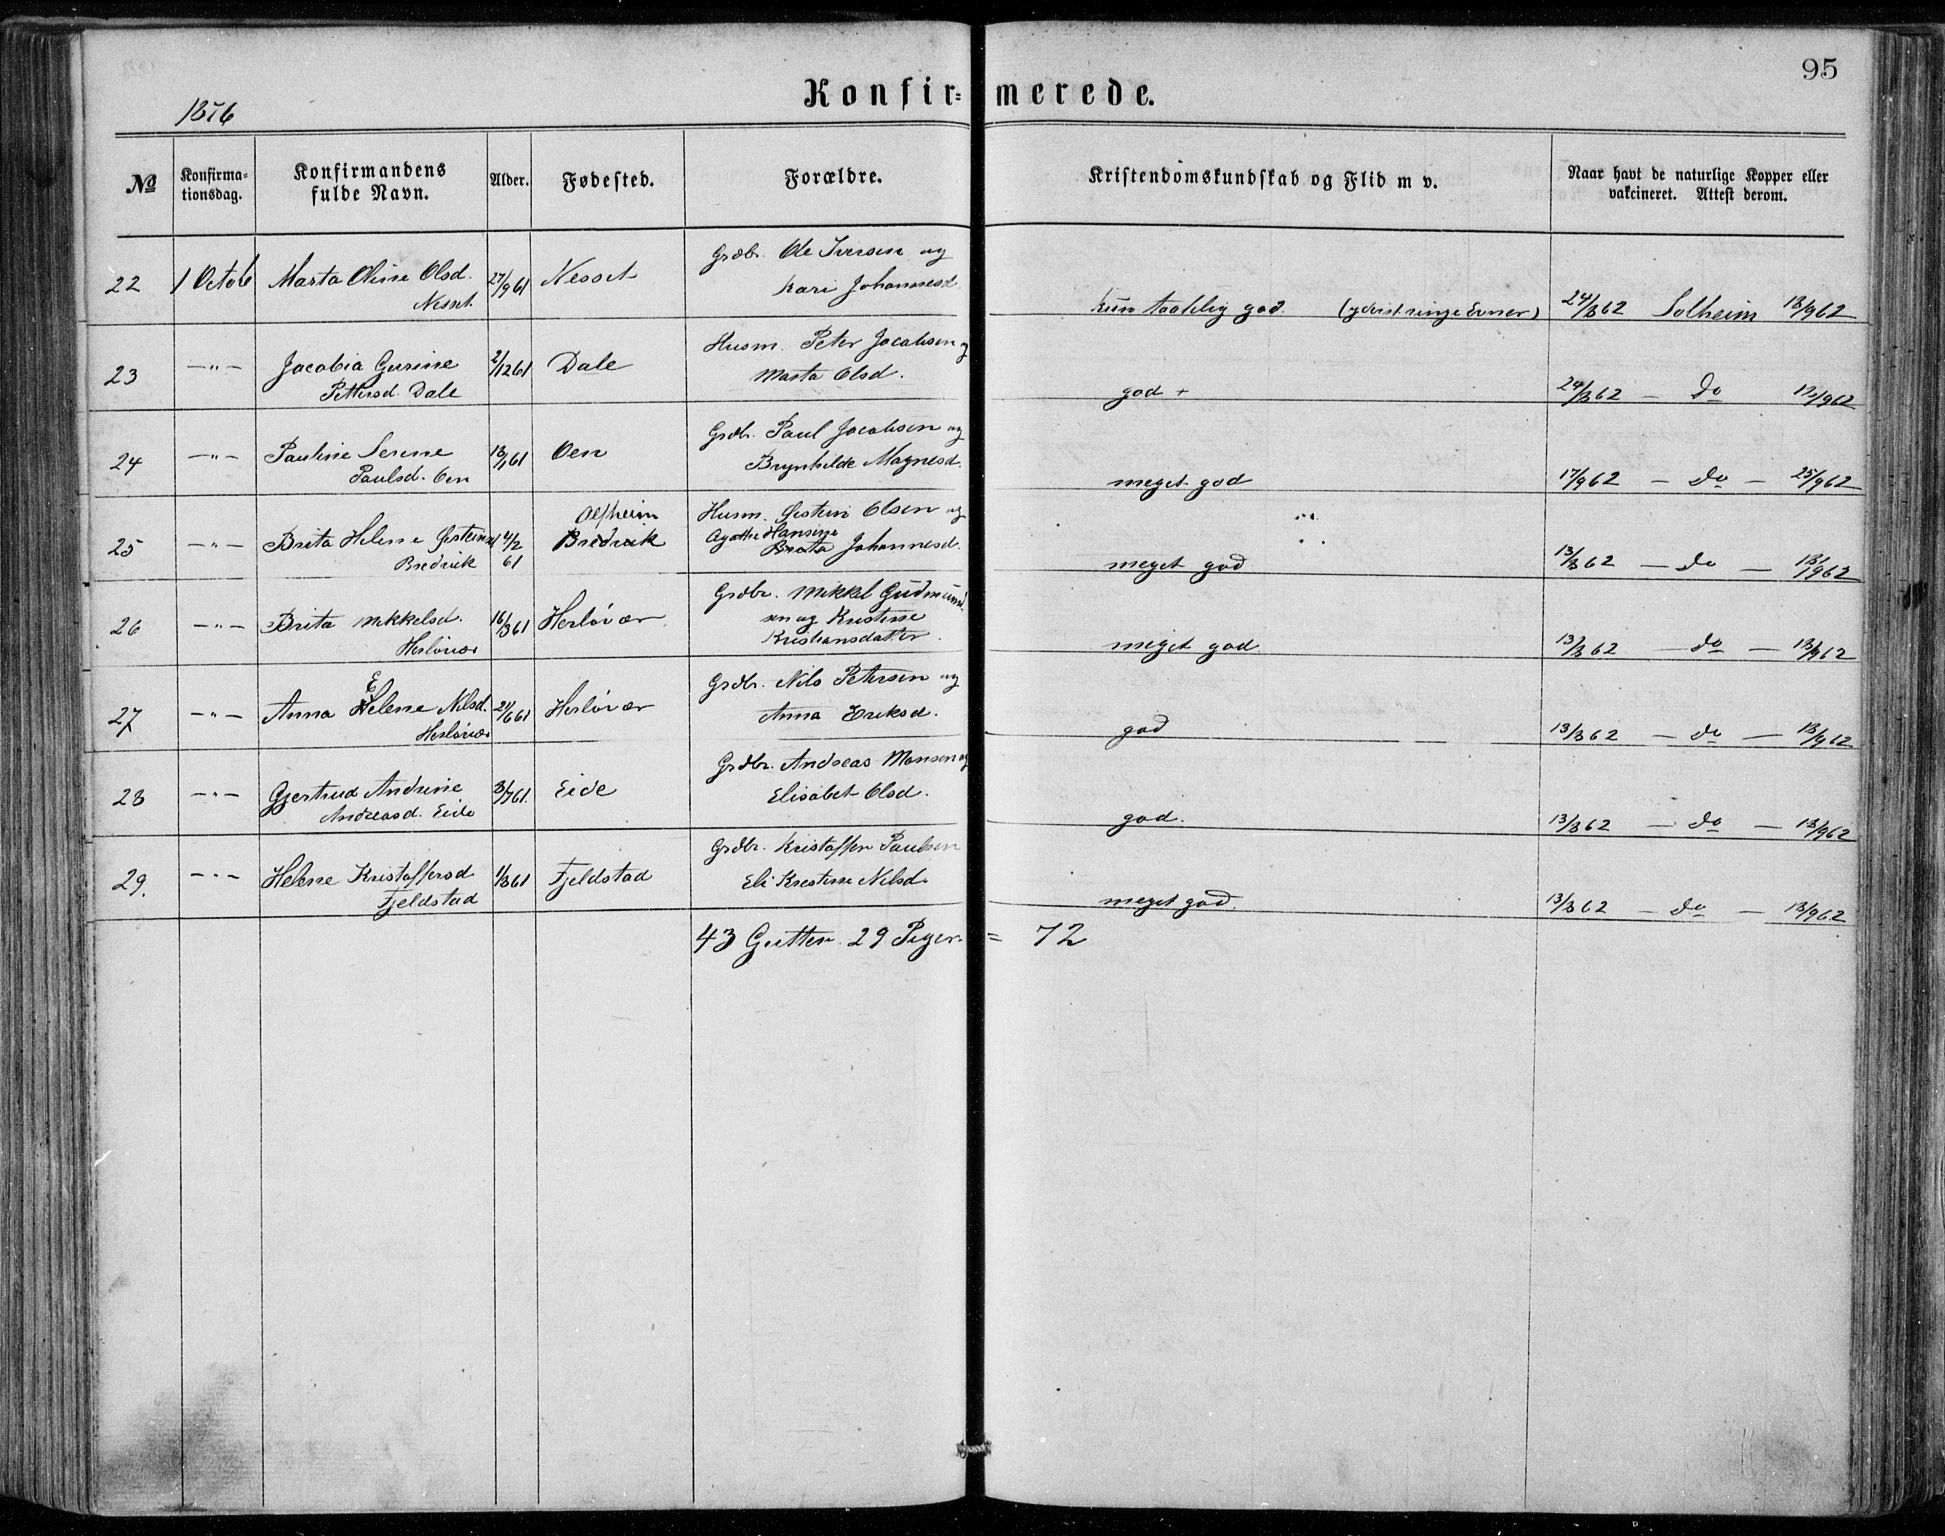 95
Konfir= merede.
1876
No Konfirma-tionsdag. Konfirmandens fulde Navn. Alder. Fødested. Forældre. Kristendomskundskab og Flid m v. Naar havt de naturlige Kopper eller vakcineret. Attest derom.
Grdbr. Ole Iversen og
22 1 Octob Marta Oline Olsd. 27/9 61 Nesset Kari Johannesd.
Nesset kun taalelig god. (yderst ringe Evner) 24/8 62 Solheim 18/9 62
Husm. Peter Jacobsen og
23 —"— Jacobia Gurine 2/12 61 Dale Marta Olsd.
Pettersd. Dale god + 24/8 62 — do 18/9 62
Grdbr. Paul Jacobsen og
24 —"— Pauline Serine 18/1 61 Oen Brynhilde Magnesd.
Paulsd. Oen meget god 17/9 62 — do — 25/9 62
Alfheim Husm. Østein Olsen og
25 —"— Brita Helene Østeinsd 4/2 61 Bredvik Agathe Hansine Brita Johannesd.
Bredvik meget god 13/8 62 — do — 18/9 62
Grdbr. Mikkel Gudmund-
26 —"— Brita Mikkelsd. 16/3 61 Herløvær sen og Kristine
Herløvær Kristiansdatter. meget god 13/8 62 — do — 18/9 62
E Grdbr. Nils Petersen og
27 —"— Anna Helene Nilsd. 21/6 61 Herløvær Anna Eriksd.
Herløvær god 13/8 62 — do — 18/9 62
Grdbr. Andreas Monsen og
28 —"— Gjertrud Andrine 3/7 61. Eide Elisabet Olsd.
Andreasd. Eide god. 13/8 62 — do — 18/9 62
Grdbr. Kristoffer Paulsen
29. —"— Helene Kristoffersd 1/3 61 Fjeldstad Eli Kristine Nilsd.
Fjeldstad meget god. 13/8 62 — do — 18/9 62
43 Gutter. 29 Piger. = 72